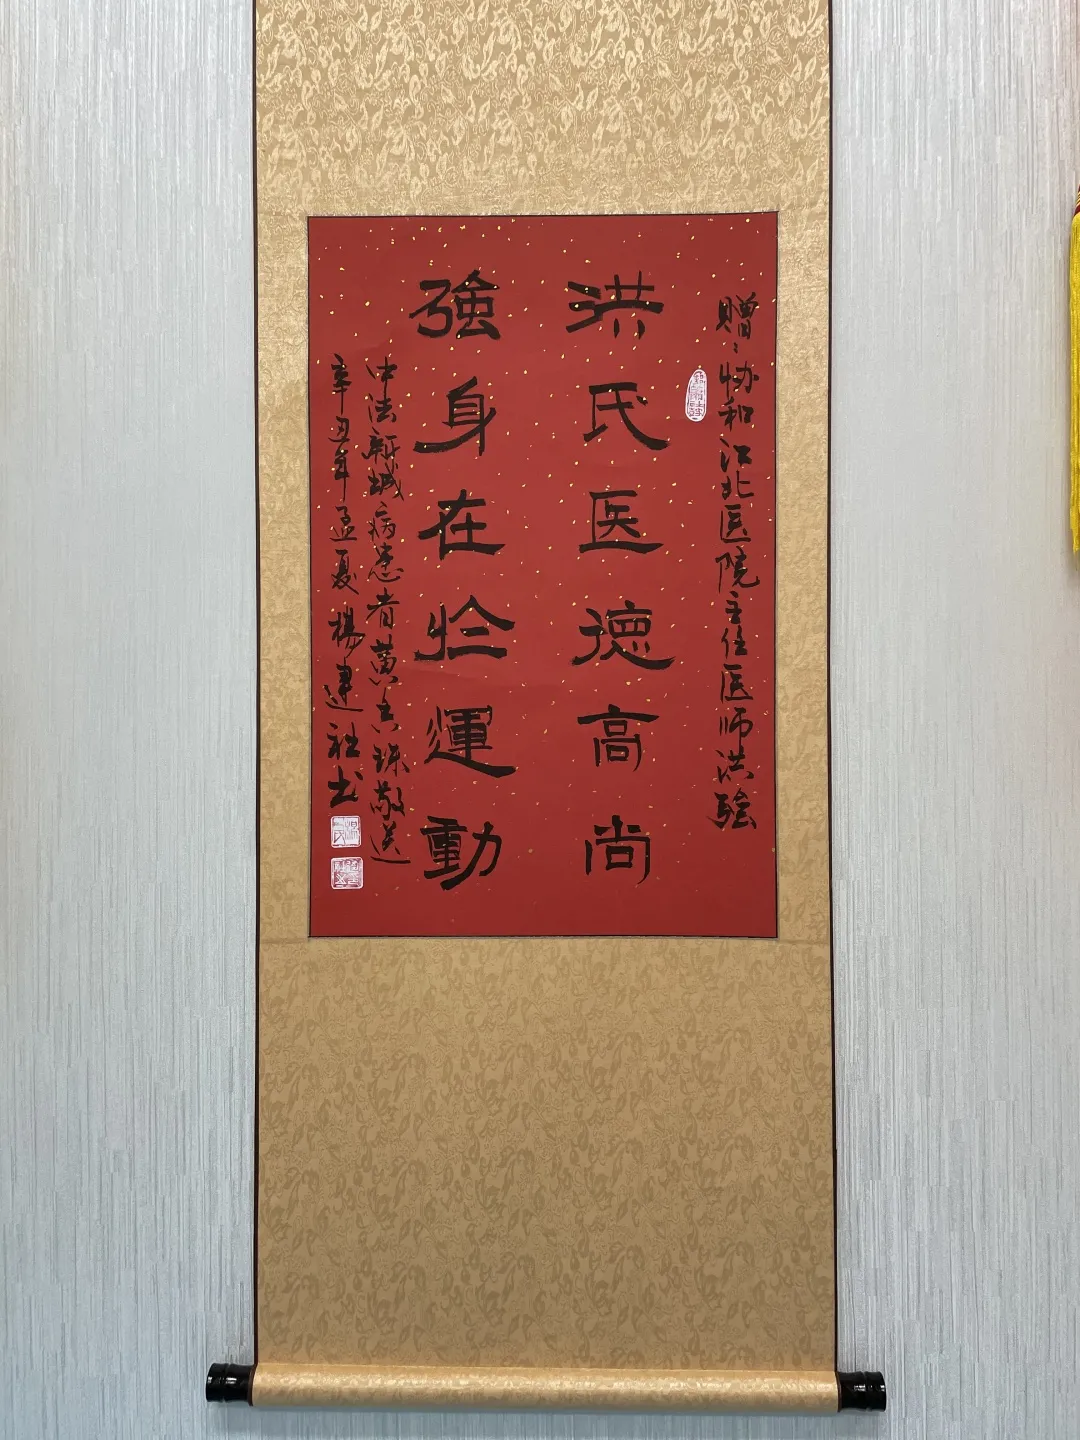 赠：协和江北医院主任医师洪强
洪氏医德高尚
強身在於運動
中法新城病患者黄吉珠敬送
辛丑年孟夏楊建社书